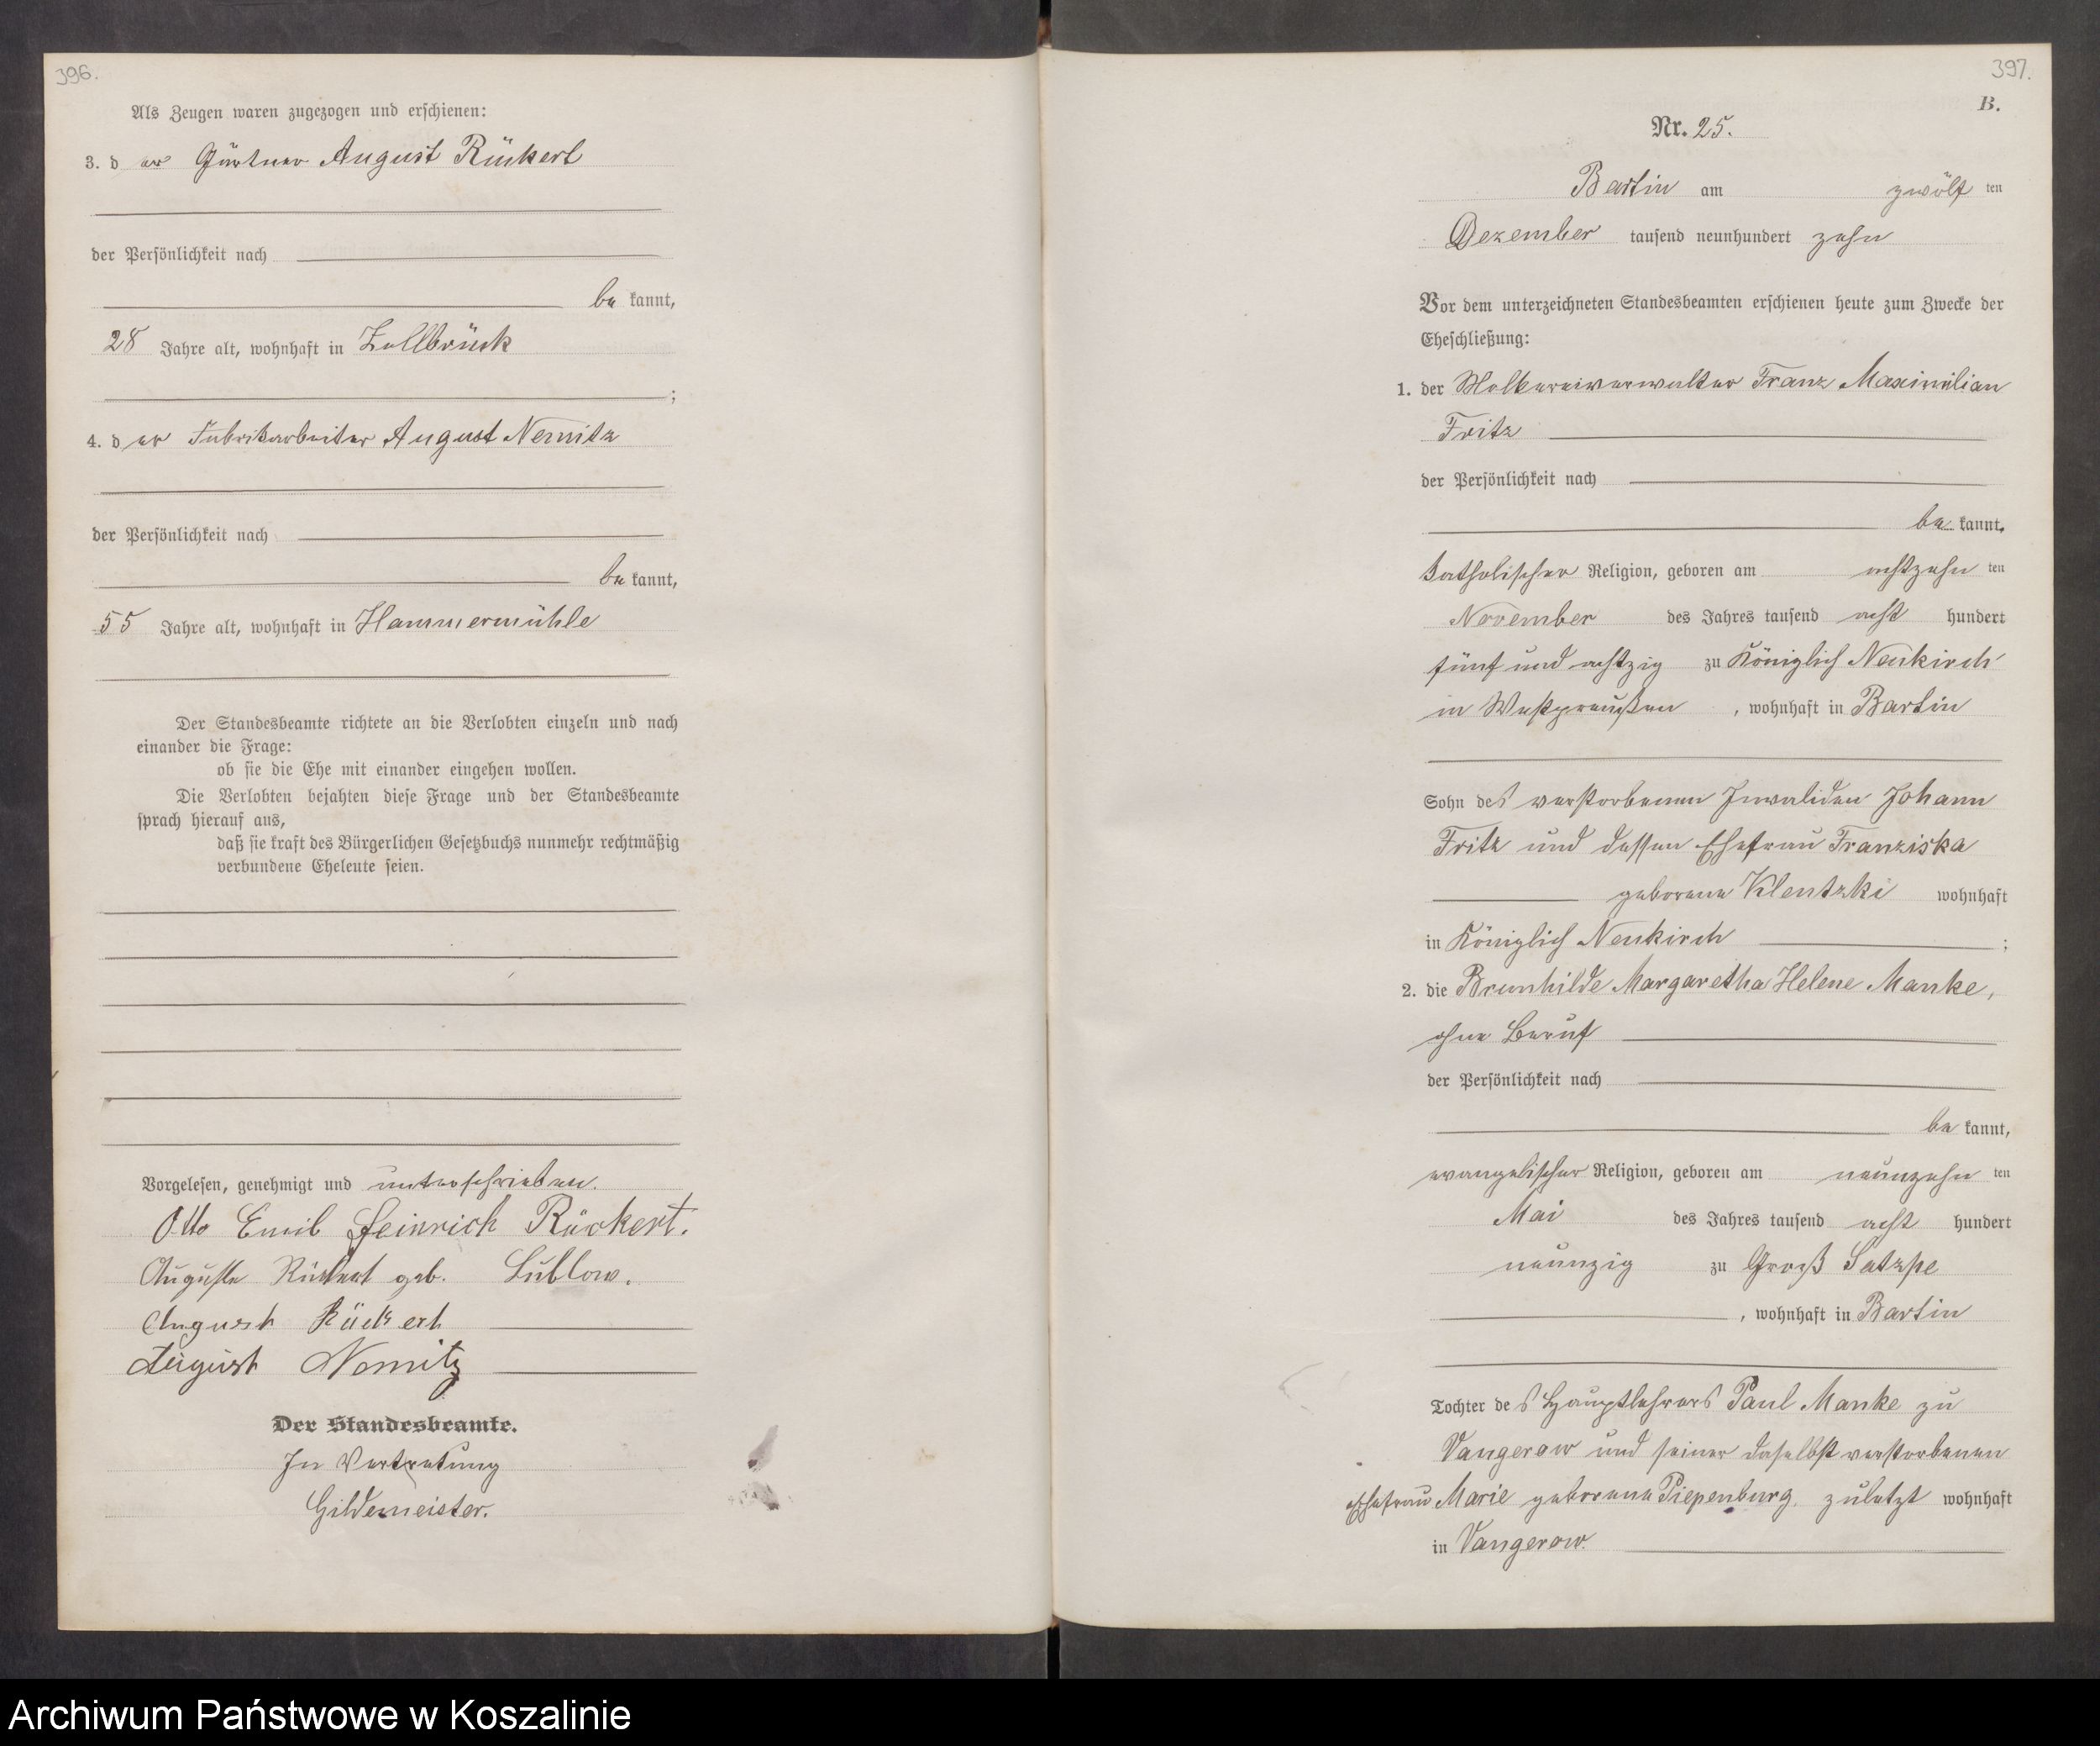 396.
Als Zeugen waren zugezogen und erschienen:
3. d er Gärtner August Rückert
der Persönlichkeit nach
be kannt,
28 Jahre alt, wohnhaft in Zollbrück
;
4. d er Fabrikarbeiter August Nemitz
der Persönlichkeit nach
be kannt,
55 Jahre alt, wohnhaft in Hammermühle
Der Standesbeamte richtete an die Verlobten einzeln und nach
einander die Frage:
ob sie die Ehe mit einander eingehen wollen.
Die Verlobten bejahten diese Frage und der Standesbeamte
sprach hierauf aus,
daß sie kraft des Bürgerlichen Gesetzbuchs nunmehr rechtmäßig
verbundene Eheleute seien.
Vorgelesen, genehmigt und unterschrieben.
Otto Emil Heinrich Rückert.
Auguste Rückert geb. Lüblow.
August Rückert
August Nemitz
Der Standesbeamte.
In Vertretung
Gildemeister.
397.
B.
Nr. 25.
Bartin am zwölf ten
Dezember tausend neunhundert zehn
Vor dem unterzeichneten Standesbeamten erschienen heute zum Zwecke der
Eheschließung:
1. der Molkereiverwalter Franz Maximilian
Fritz
der Persönlichkeit nach
be kannt,
katholischer Religion, geboren am achtzehn ten
November des Jahres tausend acht hundert
fünf und achtzig zu Königlich Neukirch
in Westpreußen , wohnhaft in Bartin
Sohn des verstorbenen Invaliden Johann
Fritz und dessen Ehefrau Franziska
geborene Klentzki wohnhaft
in Königlich Neukirch ;
2. die Brunhilde Margaretha Helene Manke,
ohne Beruf
der Persönlichkeit nach
be kannt,
evangelischer Religion, geboren am neunzehn ten
Mai des Jahres tausend acht hundert
neunzig zu Groß Satzpe
, wohnhaft in Bartin
Tochter de s Hauptlehrers Paul Manke zu
Vangerow und seiner daselbst verstorbenen
Ehefrau Marie geborene Piepenburg, zuletzt wohnhaft
in Vangerow.
Archiwum Państwowe w Koszalinie